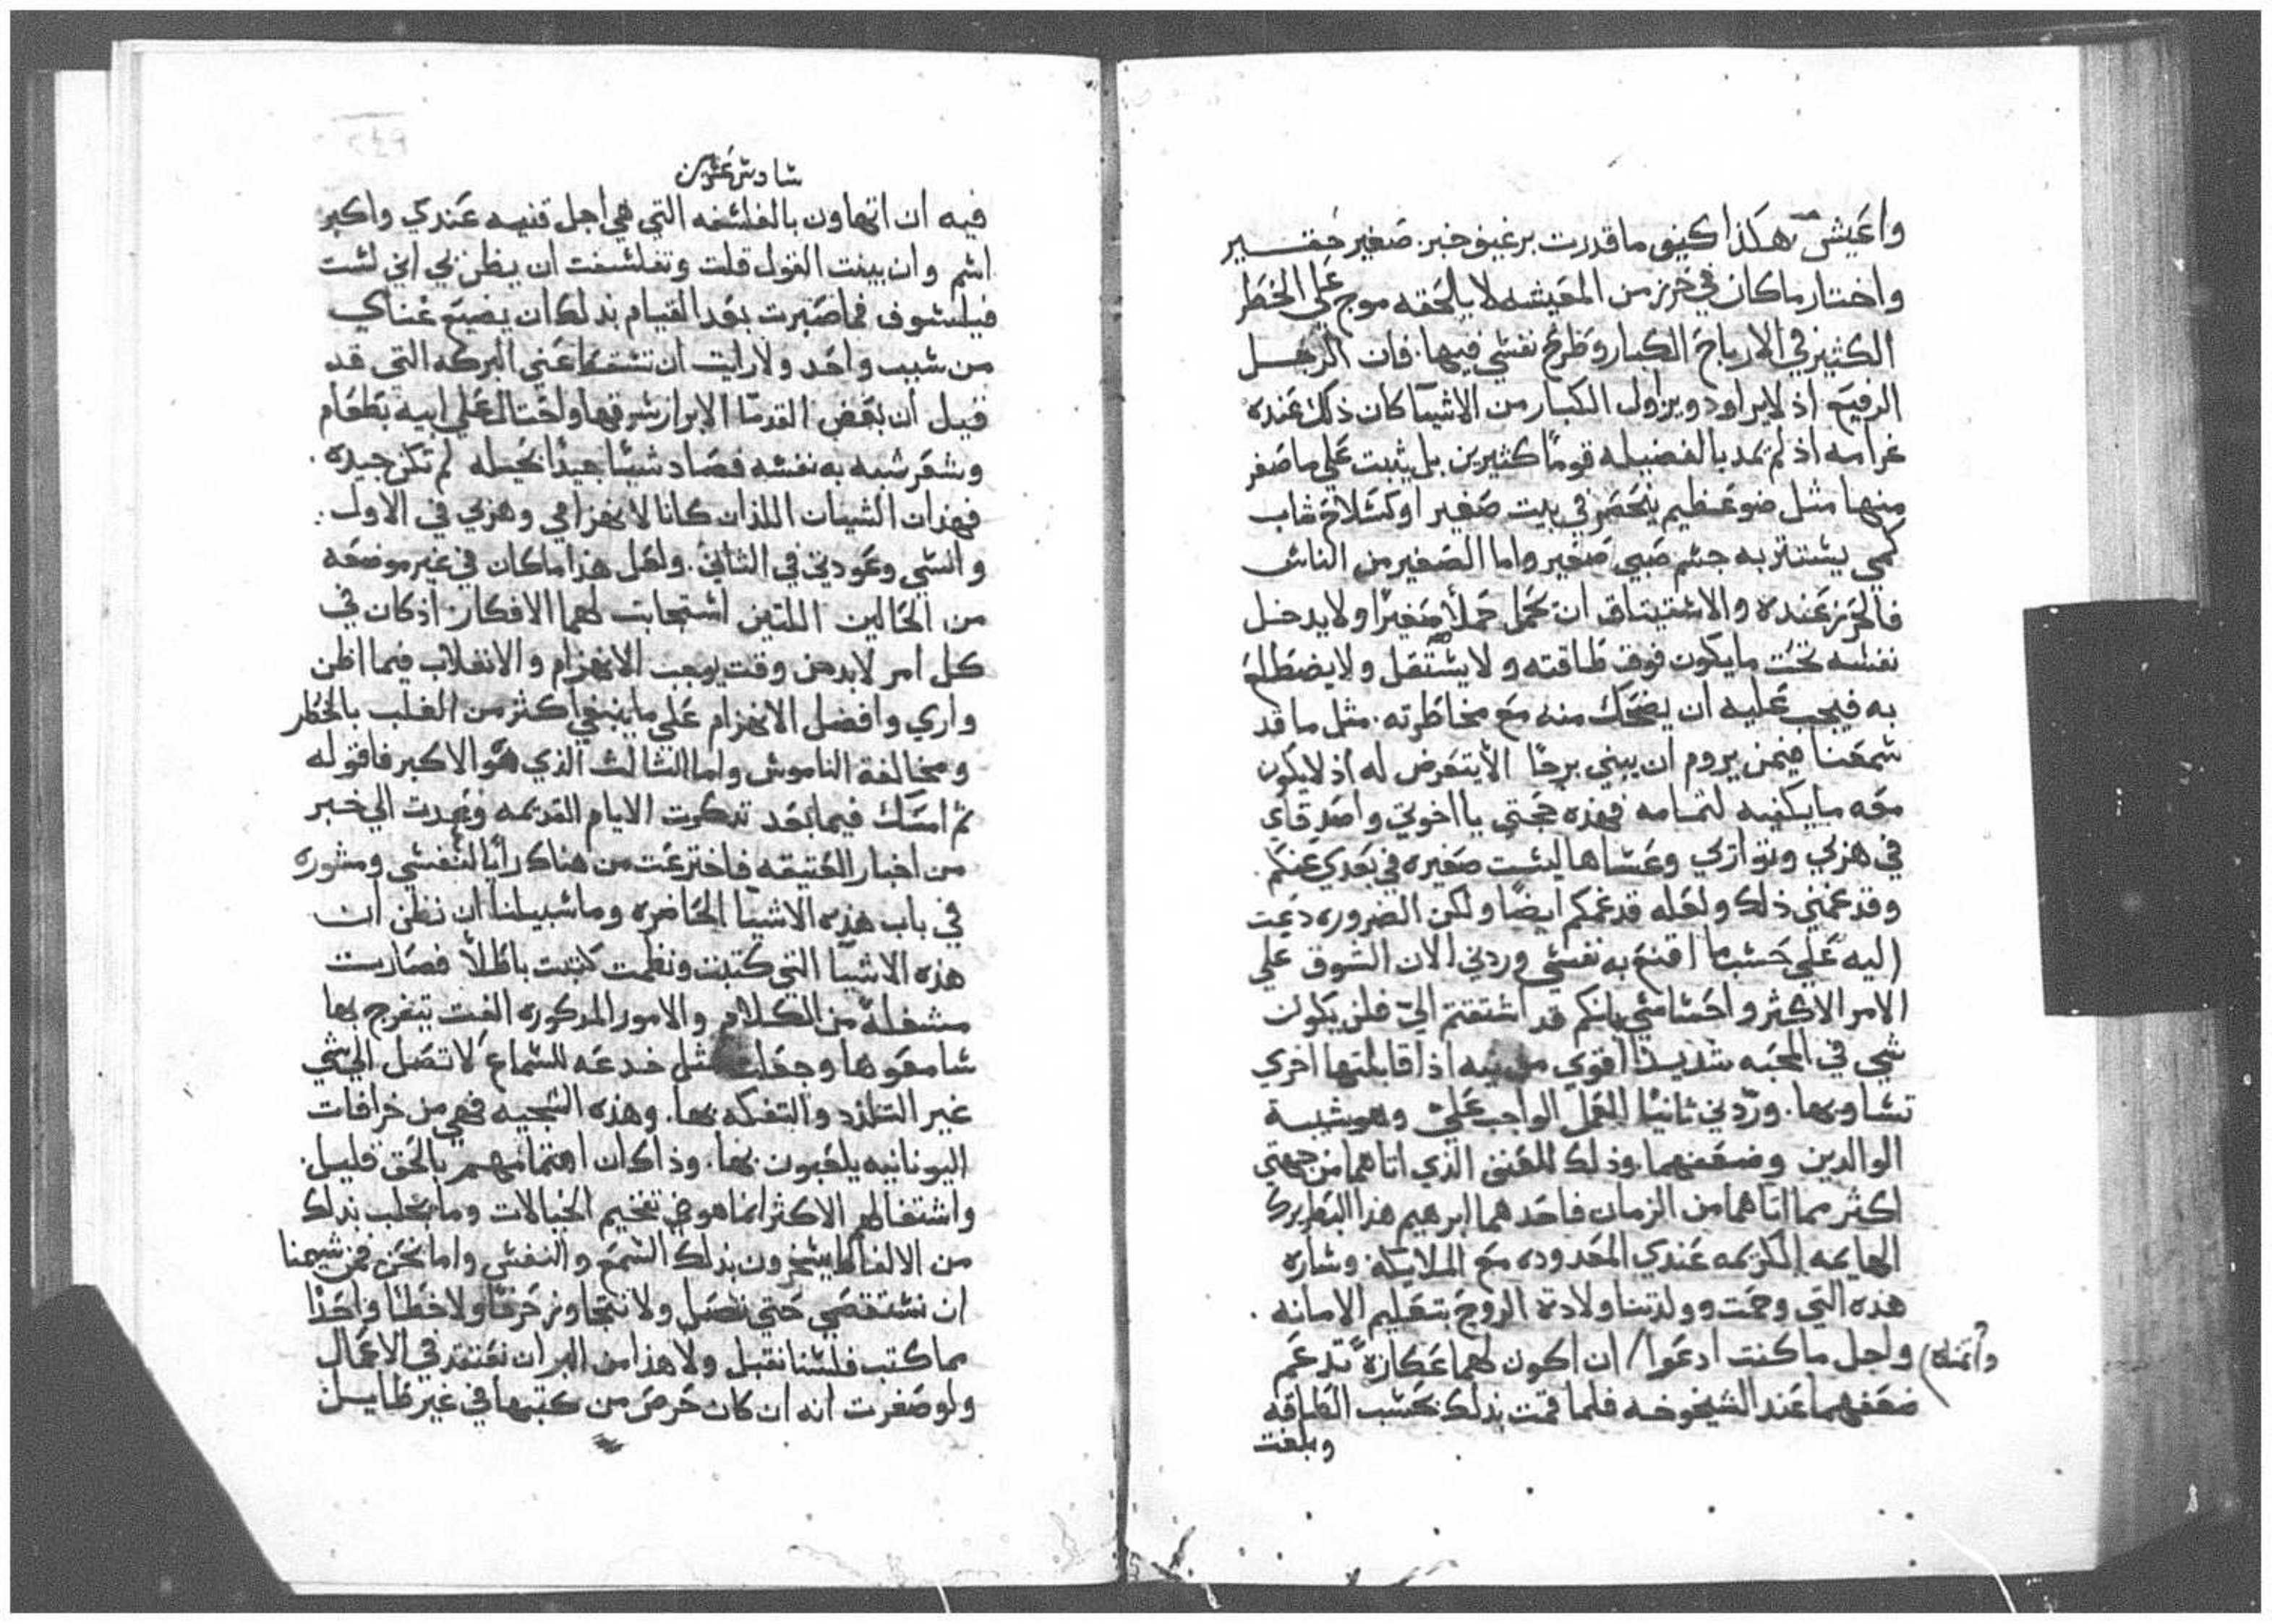 واعيش هكذا كيفى ما قدرت برغيف خبز صغير حقير
واختار ما كان في حرز من المعيشه لا يلحقه موج علي الخطر
الكثير في الارباح الكبار وطرح نفسي فيها. فان الرجل
الرفيع اذ لا يراود ويزاول الكبار من الاشيا كان ذلك عنده
غرامه اذ لم يمد بالفضيله قوماً كثيرين بل يثبت علي ما صغر
منها مثل ضو عظيم ينحصر في بيت صغير او كسلاح شاب
كمي يستتر به جسم صبي صغير واما الصغير من الناس
فالحرز عنده والاستيثاق ان يحمل حملاً صغيرًا ولا يدخل
نفسه تحت ما يكون فوق طاقته ولا يستقل ولا يضطلع
به فيجب عليه ان يضحك منه مع مخاطرته. مثل ما قد
سمعنا فيمن يروم ان يبني برجًا الا يتعرض له اذ لا يكون
معه ما يكفيه لتمامه فهذه حجتي يا اخوتي واصدقاي
في هزبي وتوازي وعساها ليست صغيره في بعدي عنكم.
وقد غمني ذلك ولعله قد غمكم ايضًا ولكن الضروره دعت
اليه علي حسب ما اقنع به نفسي وردني الان الشوق علي
الامر الاكثر واحساسي بانكم قد اشتقتم الي فلن يكون
شي في المحبه شديدًا اقوي من اذا قابلتها اخري
تساويها. وردني ثانيًا العمل الواجب علي وهو شيبة
الوالدين وضعفهما. وذلك الذي اتاهما من جهتي
اكثر مما اتاهما من الزمان فاحدهما ابرهيم هذا البطريرك
الهامه الكريمه عندي المعدوده مع الملايكه وساره
هذه التي وحمت وولدتنا ولادة الروح بتعليم الامانه.
ولجل ما كنت ادعوا / ان اكون لهما عكازةً تدعم
واتمناه
ضعفهما عند الشيخوخه فلما قمت بذلك بحسب الطاقه
وبلغت
سادس عشرين
فيه ان اتهاون بالفلسفه التي هي اجل قنيه عندي واكبر
اسم وان بينت القول قلت وتفلسفت ان يظن بي اني لست
فيلسوف فما صبرت بعد القيام بذلك ان يضيع عناي
من سبب واحد ولا رايت ان تسقط عني البركه التي قد
قيل ان بعض القدما الابرار سرقها واحتال علي ابيه بطعام
وشعر شبه به نفسه فصاد شيًا جيدًا بحيله لم تكن جيده.
فهذان الشيان اللذان كانا لانهزامي وهزبي في الاول.
والسي وعودتي في الثاني. ولعل هذا ما كان في غير موضعه
من الحالين اللتين استجابت لهما الافكار اذ كان في
كل امر لا بد من وقت يوجب الانهزام والانغلاب فيما اظن
واري وافضل الانهزام علي ما ينبغي اكثر من الغلب بالخطر
ومخالفة الناموس واما الثالث الذي هو الاكبر فاقوله
ثم امسك فيما بعد تذكرت الايام القديمه وعدت الي خبر
من اخبار العتيقه فاخترعت من هناك رايًا لنفسي ومشوره
في باب هذه الاشيا الحاضره وما سبيلنا ان نظن ان
هذه الاشيا التي كتبت ونظمت كتبت باطلاً فصارت
مشغلة من الكلام والامور المذكوره الفت يتفرج بها
سامعوها وجعلت مثل خدعه للسماع لا تصل الي شي
غير التلذذ والتفكه بها. وهذه السجيه فهي من خرافات
اليونانيه يلعبون بها. وذاك ان اهتمامهم بالحق قليل.
واشتغالهم الاكثر انما هو في تفخيم الخيالات وما يخلب بذلك
من الالفاظ يسخرون بذلك السمع والنفس واما نحن فمن سيمنا
ان نستقصي حتي نتصل ولا نتجاوز حرفًا ولا خطًا واحدًا
مما كتب فلسنا نقبل ولا هذا من البر ان نعتقد في الاعمال
ولو صغرت انه ان كان حرص من كتبها في غير طايل